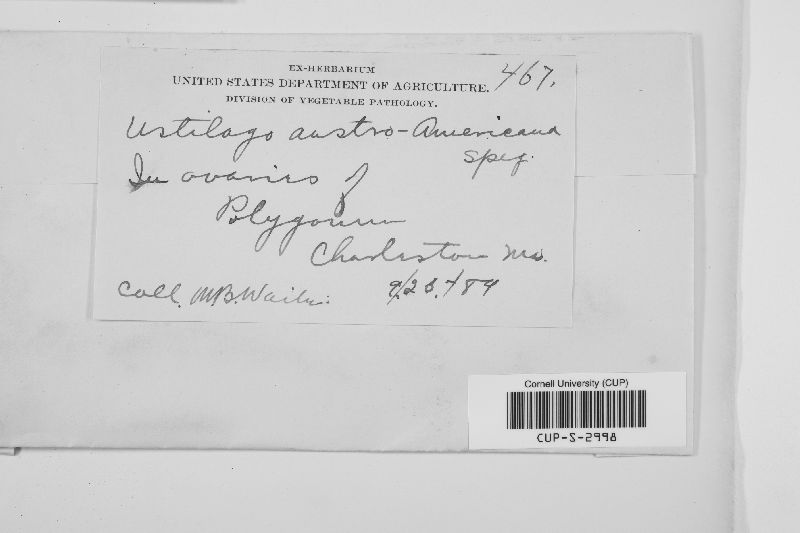 EX-HERBARIUM
UNITED STATES DEPARTMENT OF AGRICULTURE. 467.
DIVISION OF VEGETABLE PATHOLOGY.
Ustilago austro-Americana
Speg.
In ovaries of
Polygonum
Charleston Mo.
Coll. M.B. Waite.
Cornell University (CUP)
CUP-S-2998